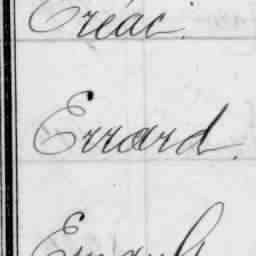 Créac
Errard.